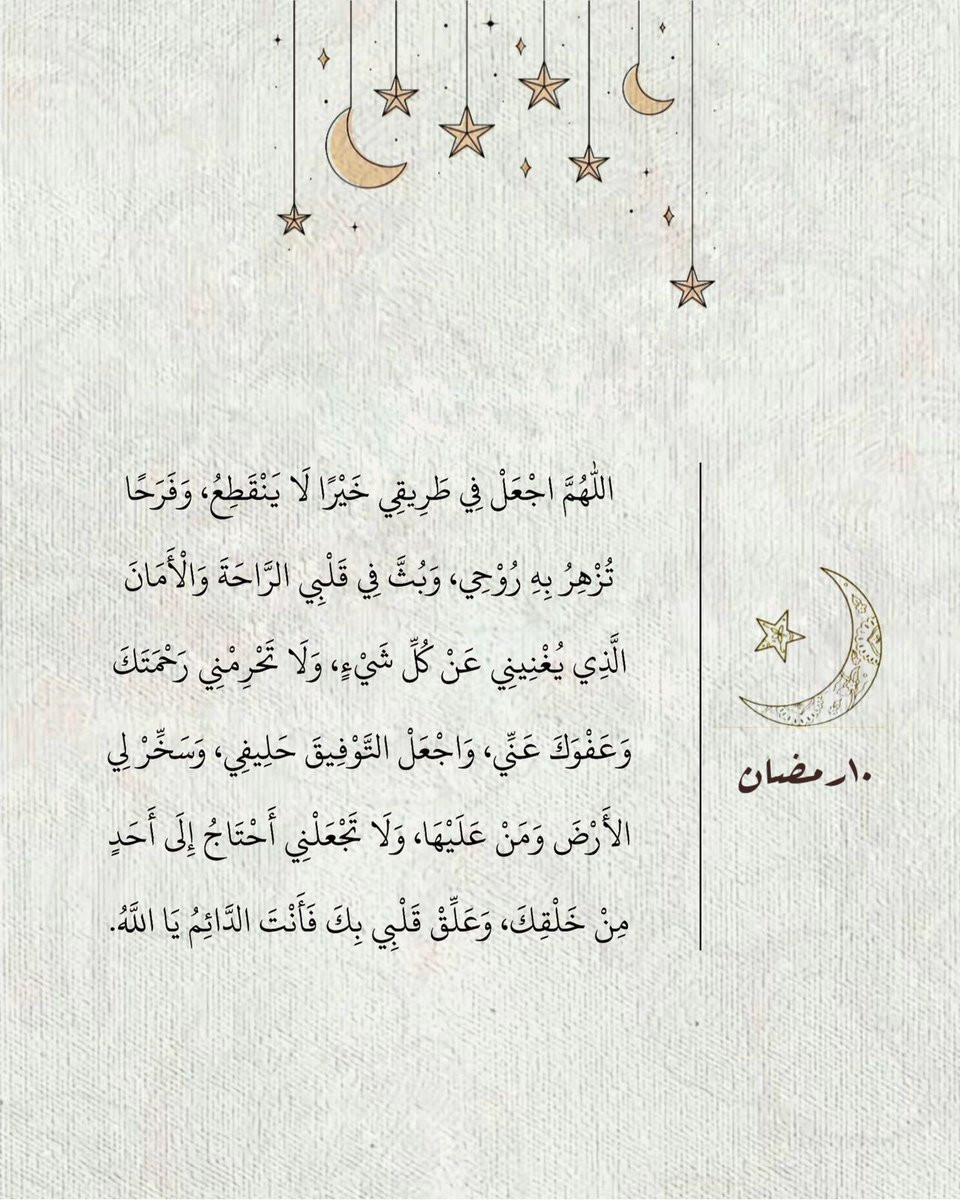 اللَّهُمَّ اجْعَلْ فِي طَرِيقِي خَيْرًا لَا يَنْقَطِعُ، وَفَرَحًا
تُزْهِرُ بِهِ رُوْحِي، وَبُثَّ فِي قَلْبِي الرَّاحَةَ وَالْأَمَانَ
الَّذِي يُغْنِينِي عَنْ كُلِّ شَيْءٍ، وَلَا تَحْرِمْنِي رَحْمَتَكَ
وَعَفْوَكَ عَنِّي، وَاجْعَلْ التَّوْفِيقَ حَلِيفِي، وَسَخِّرْ لِي
الأَرْضَ وَمَنْ عَلَيْهَا، وَلَا تَجْعَلْنِي أَحْتَاجُ إِلَى أَحَدٍ
مِنْ خَلْقِكَ، وَعَلِّقْ قَلْبِي بِكَ فَأَنْتَ الدَّائِمُ يَا اللَّهُ.
١٠ رمضان